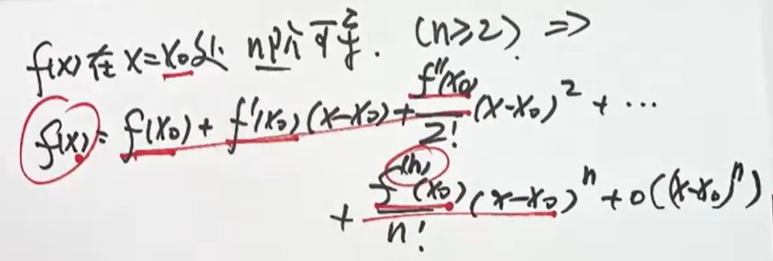 f(x)在x=x₀处 n阶可导. (n≥2) ⇒
f(x)=f(x₀)+f'(x₀)(x-x₀)+f''(x₀)/2!(x-x₀)²+⋯
+f⁽ⁿ⁾(x₀)/n!(x-x₀)ⁿ+o((x-x₀)ⁿ)